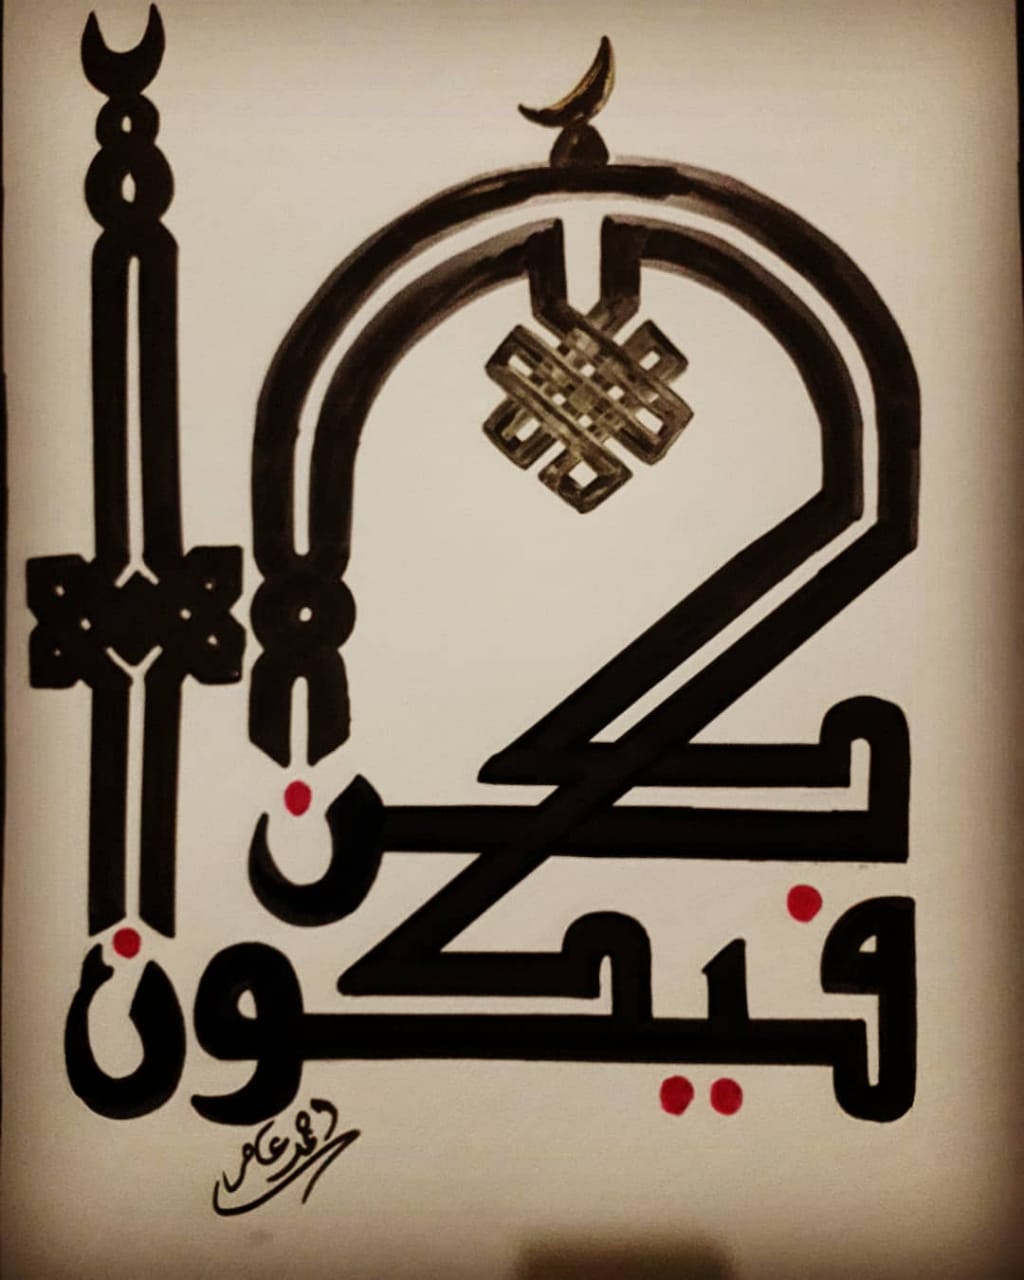 كن
فيكون
احمد عامر